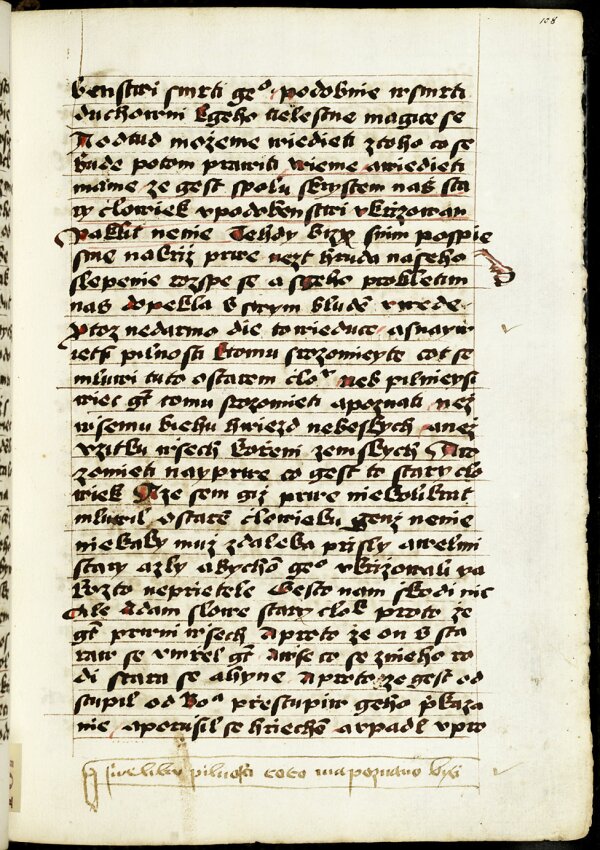 108
benstwi smrti geᵒ podobnie w smrti
duchowni kgeho tielestne magice se
A odtud možeme wiedieti ztoho co se
bude potom prawiti Wieme a wiedieti
mame ze gest spolu skrystem naš sta
ry clowiek vpodobenstwi vkrizowan
Pakkit nenie Tehdy snim pospie
sme na križ prwe nezt hruda naseho
slepenie rozspe se a sgeho probletim
nas do pekla b swym bludē vwede
Protoz nedarmo die to wieduce a snayw
ietss pilnosti ktomu srozomieyte cot se
mluwi tuto o starem cloᵒ neb pilnieyssi
wiec gt tomu srozomieti a poznati než
wsemu biehu hwiezd nebeskych anež
vzitku wsech kořeni zemskych A ro
zomieti nayprwe co gest to stary clo
wiek A ze sem giž prwe niekolikrat
mluwil o starē clowieku genž nenie
niekaky muž zdaleka prisly a welmi
stary azly abychom geᵒ vkrizowali ya
kozto neprietele Gesto nam skodi nic
Ale Adam slowe stary clok proto že
gt prwni wsech A proto že on b sta
rav se vmrel gt Awse co se znieho ro
di stara se a hyne A proto ze gest od
stupil od Boᵃ prestupiw geho pkaza
nie a porusil se hriechē a vpadl vpro
pilnosti toto ma poznano byti